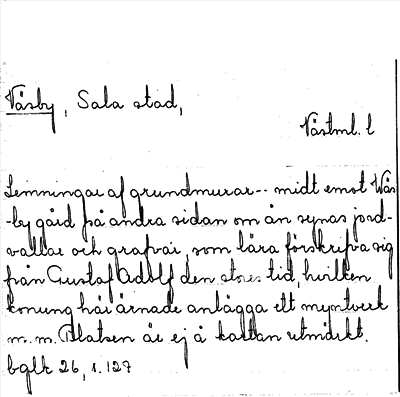 Våsby, Sala stad,
Västml. l
Lemningar af grundmurar-- midt emot Wås
-by gård på andra sidan om ån synas jord-
vallar och grafvar, som lära förskrifva sig
från Gustaf Adolf den stores tid, hvilken
konung här ärnade anlägga ett myntverk
m. m. Platsen är ej å kartan utmärkt.
bglk 26, s. 127